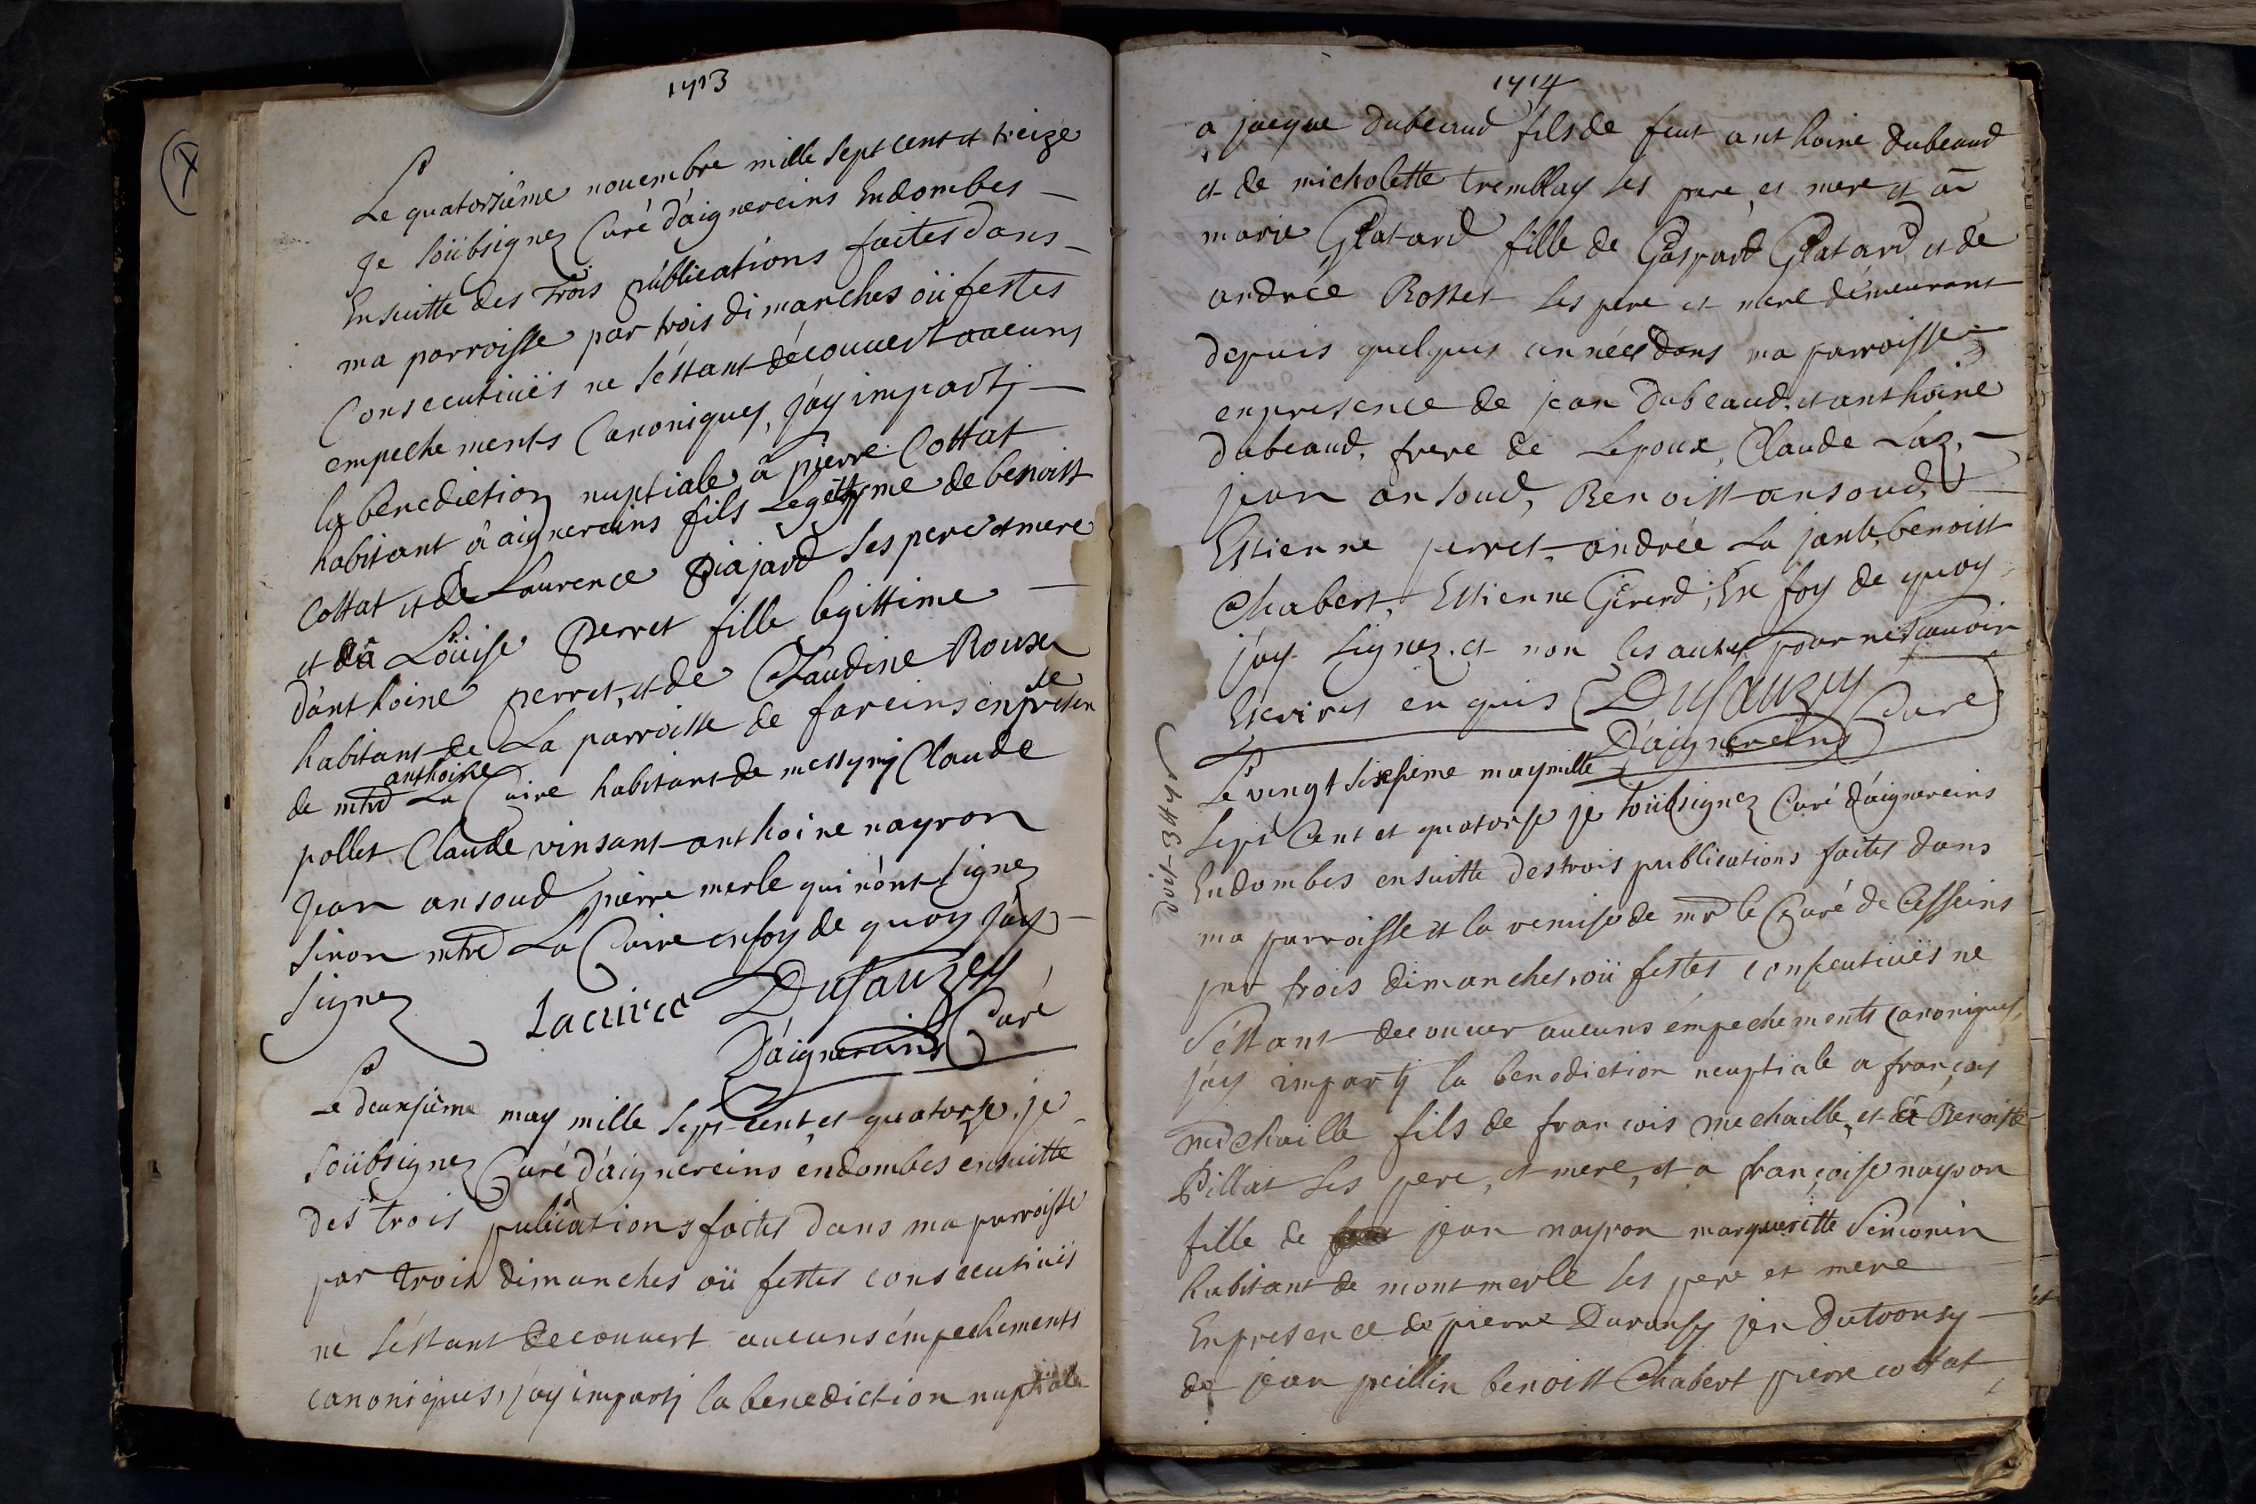 1713
Le quatorziême nouembre mille sept cent et treize
Je soûbsignez Curé d'aignereins Endombes
Ensuitte des trois publications faites dans
ma parroisse par trois dimanches oü festes
Consecutiües ne s'éstant découuert aucuns
empechements Canoniques, j'ay impartj
la benediction nuptiale â pierre Cottat
habitant â aignereins fils Legittyme de benoist
Cottat et de Laurence Piajard ses pere et mere
et â Loüise Perret fille legittime
d'anthoine perret, et de Claudine Roux
habitant de La parroisse de fareins en presen
ce
de mtre anthoine La Cuire habitant de messymj Claude
pollet Claude vinsant anthoine nayron
Jean ansoud pierre merle qui n'ont signez
sinon mtre La Cuire enfoy de quoy j'ay
signez Lacuire Dusauzey
D'aignereins Curé
Le deuxsiême may mille sept cent et quatorze, je
soübsignez Curé d'aignereins endombes ensuitte
des trois publications faites dans ma parroisse
par trois dimanches oü festes consecutiües
ne s'éstant decouuert aucuns émpechements
canoniques, j'ay impartj la benediction nuptiale
1714
a jacque dubeaud fils de feut anthoine dubeaud
et de micholette tremblay ses pere, et mere et â
marie Glatard fille de Gaspard Glatard et de
andrée Rosset ses pere et mere démeurant
depuis quelques années dans ma parroisse
enpresence de jean Dubeaud, et anthoine
dubeaud, frere de Lepoux, Claude Laz,
jean ansoud, Benoist ansoud,
Estienne perret, andrée La jante, benoist
Chabert, Estienne Girerd, En foy de quoy
j'ay signez et non les autres pour ne scauoir
Escrires enquis Dusauzey
D'aignereins Curé
Le vingt sixsieme may mille
sept Cent et quatorse je soübsignez Curé d'aignereins
Endombes ensuitte des trois publications faites dans
ma parroisse et la remise de mr le Curé de Cesseins
par trois dimanches, oü festes consecutiües ne
s'éstant decouuer aucuns émpechements Canoniques,
j'ay impartj la benediction neuptiale a françois
mechaille fils de francois mechaille, et de Benoiste
Pillat ses pere, et mere, et a françoise nayron
fille de jean nayron margueritte Simonin
habitant de montmerle ses pere et mere
Enpresence de pierre Duronsy jen Dutronsy
de jean peillin benoist Chabert pierre cottat